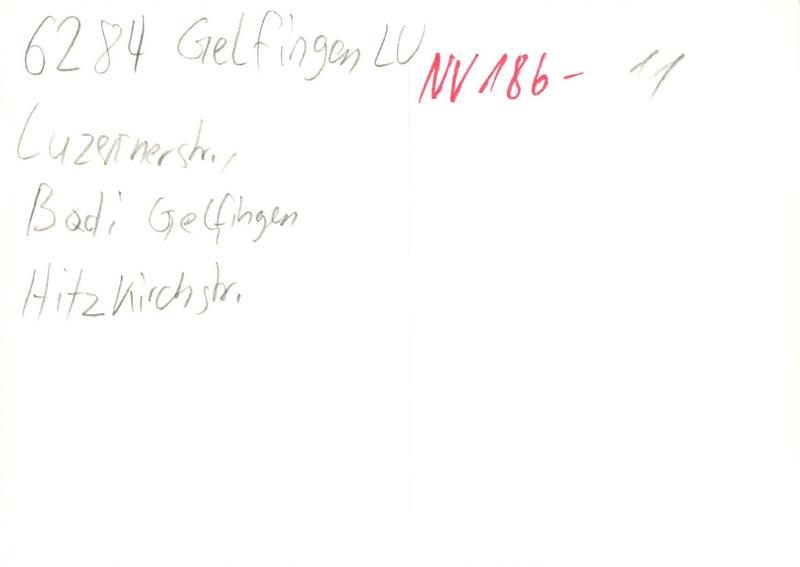 6284 Gelfingen LU
NV 186- 11
Luzernerstr.,
Badi Gelfingen
Hitzkirchstr.